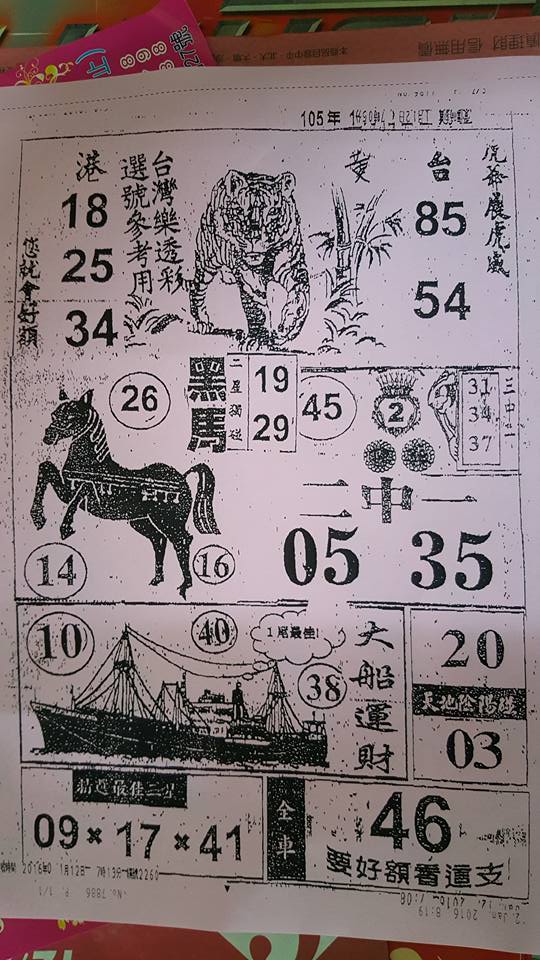 信用無價
105年
港
18
25
34
您就會好額
台灣樂透彩
選號參考用
黃
台
85
54
虎爺展虎威
26
黑馬
二星獨碰
19
29
45
2
三中一
31
34
37
14
16
二中一
05 35
10
40
1尾最佳!
38
大船運財
20
天地陰陽碰
03
精選最佳三星
09×17×41
全車
46
要好額看這支
No. 7886 P. 1/1
2. Jan. 2016 8:19